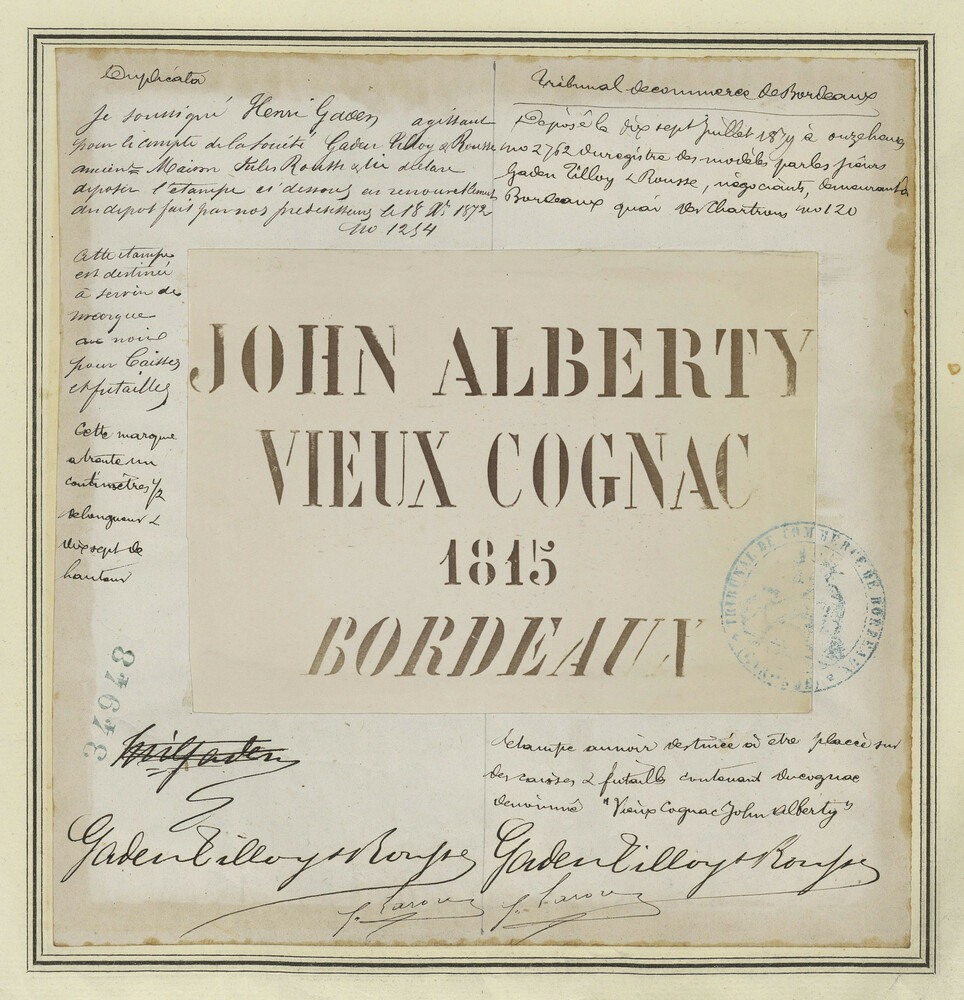 Duplicata
Je soussigné Henri Gaden agissant
pour le compte de la société Gaden Tilloy & Rousse
ancienne Maison Jules Rousse & Cie déclare
déposer l'étampe ci dessous en renouvellement
du dépôt fait par nos prédécesseurs le 18 Xre 1872
No 1254
Tribunal de commerce de Bordeaux
Déposé le dix sept Juillet 1879 à onze heures
no 2762 du registre des modèles par les sieurs
Gaden Tilloy & Rousse, négociants, demeurant à
Bordeaux quai des Chartrons no 120
Cette étampe
est destinée
à servir de
marque
au noir
pour Caisses
et futailles
Cette marque
a trente un
centimètres 1/2
de longueur &
dix sept de
hauteur
JOHN ALBERTY
VIEUX COGNAC
1815
BORDEAUX
TRIBUNAL DE COMMERCE DE BORDEAUX
34948
Etampe au noir destinée à être placée sur
des caisses & futailles contenant du cognac
dénommé "Vieux Cognac John Alberty"
Gaden Tilloy & Rousse
Gaden Tilloy & Rousse